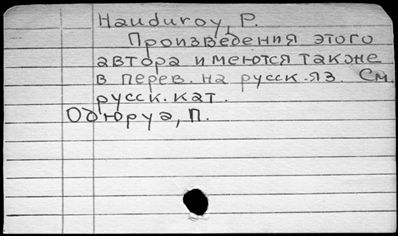 Hauduroy, P.
Произведения этого
автора имеются также
в перев. на русск. яз. См.
русск. кат.
Одюруа, П.